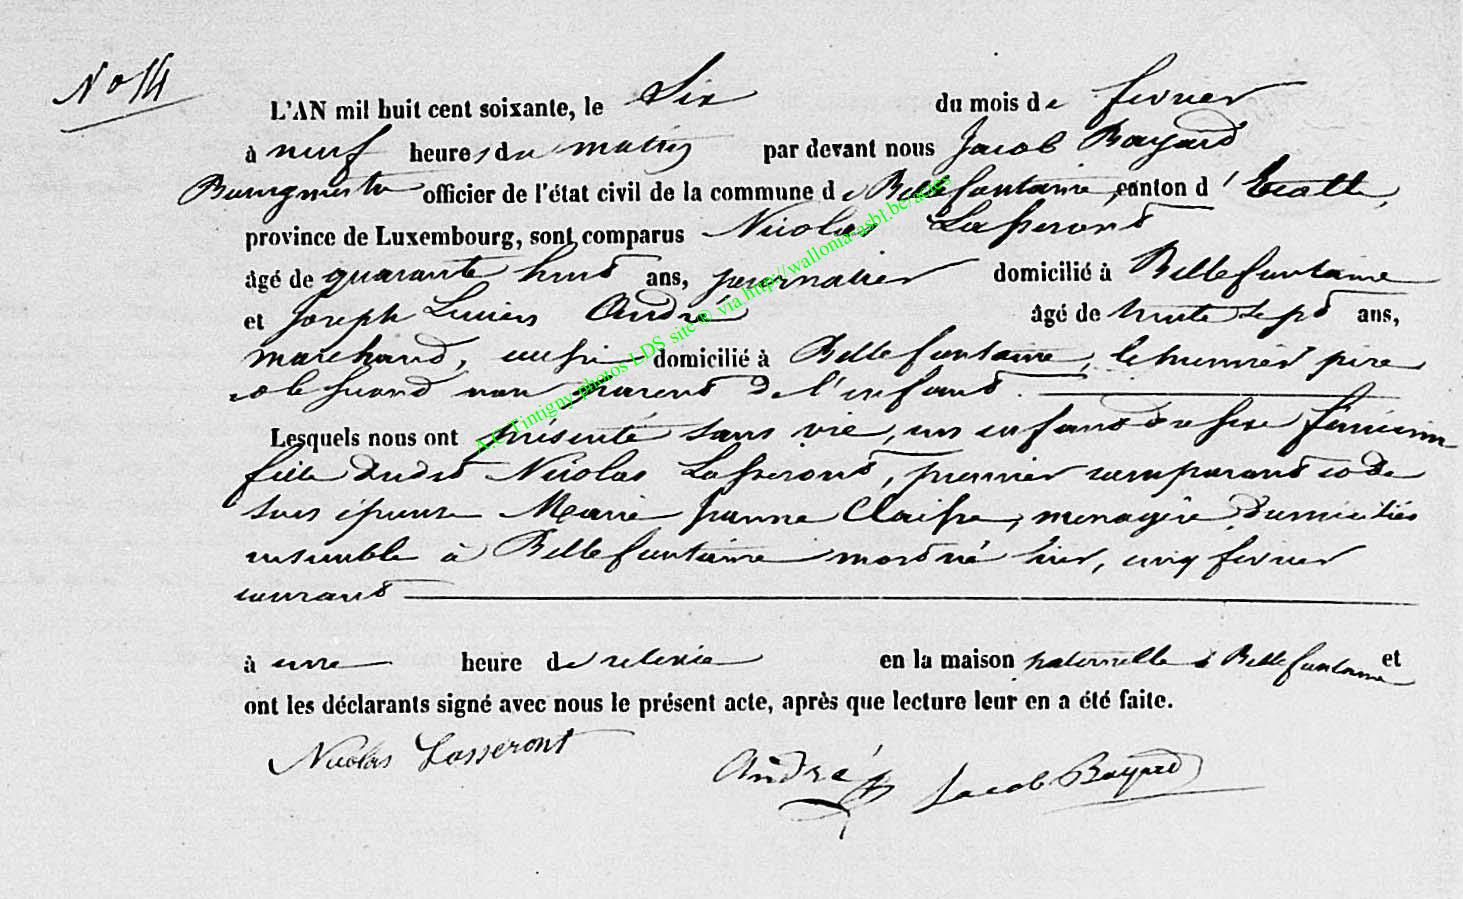 N° 14
L'AN mil huit cent soixante, le Six du mois de fevrier
à neuf heures du matin par devant nous Jacob Bayard
Bourgmestre officier de l'état civil de la commune de Bellefontaine, canton d'Etalle,
province de Luxembourg, sont comparus Nicolas Lasseront
âgé de quarante huit ans, journalier domicilié à Bellefontaine
et Joseph Lucien André âgé de trente sept ans,
marchand, aussi domicilié à Bellefontaine, le premier père
et le second non parent de l'enfant.
Lesquels nous ont présenté sans vie, un enfant du sexe féminin
fille dudit Nicolas Lasseront, premier comparant et de
son épouse Marie Jeanne Claisse, menagère, domiciliés
ensemble à Bellefontaine mort né hier, cinq fevrier
courant
à une heure de relevée en la maison paternelle à Bellefontaine et
ont les déclarants signé avec nous le présent acte, après que lecture leur en a été faite.
Nicolas Lasseront André Jacob Bayard
A.C. Tintigny photos LDS site © via http://wallonia-asbl.be/actes